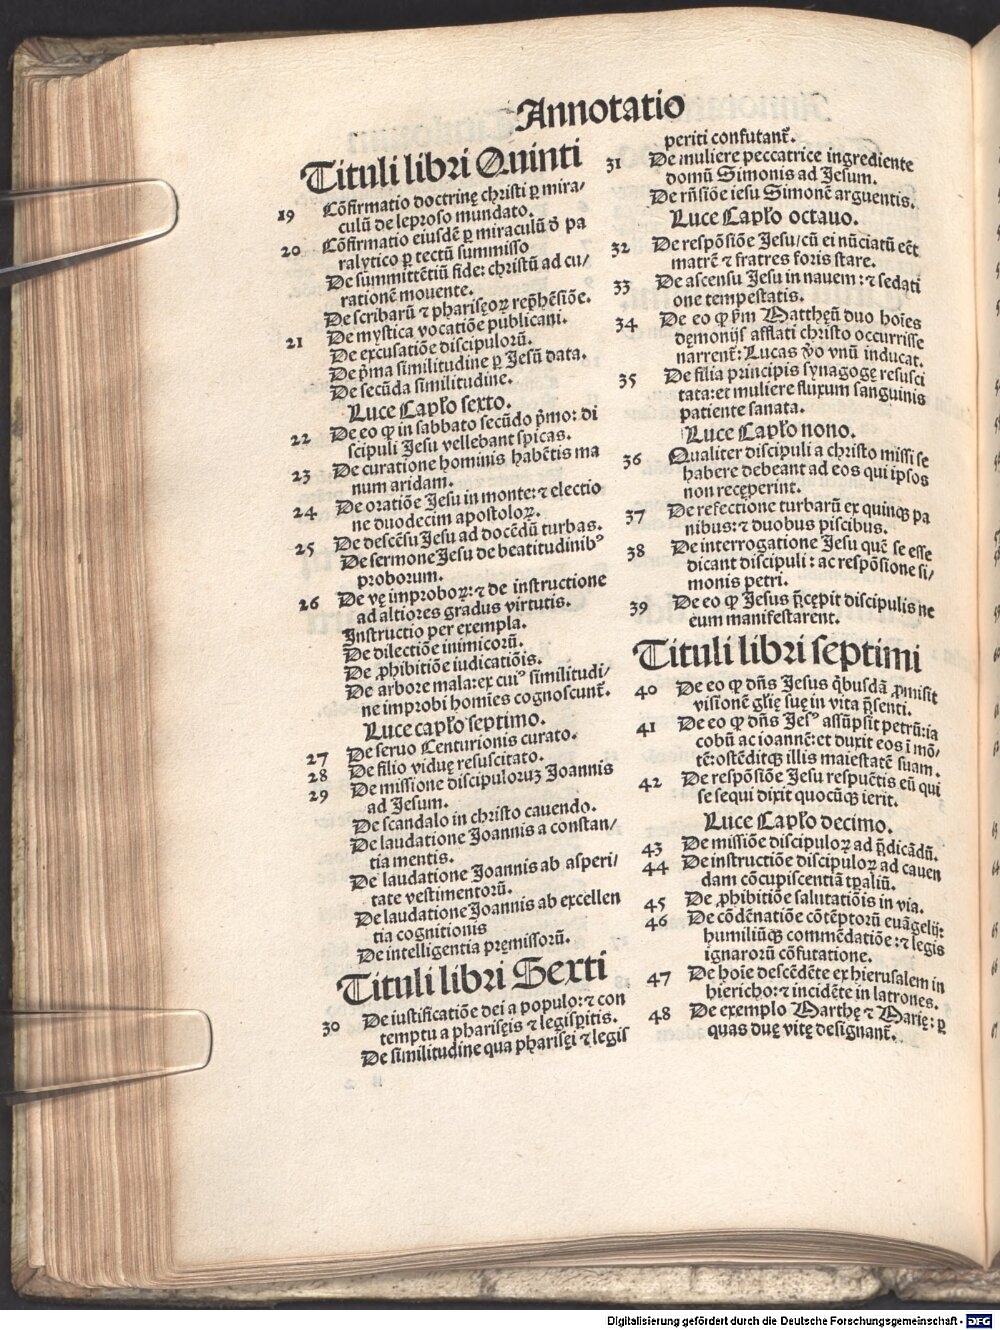 Annotatio
Tituli libri Quinti
19 Cõfirmatio doctrinę christi ꝑ mira-
culũ de leproso mundato.
20 Cõfirmatio eiusdẽ ꝑ miraculũ d̾ pa
ralytico ꝑ tectũ summisso
De summittẽtiũ fide: christũ ad cu/
rationẽ mouente.
De scribarũ ⁊ pharisęoꝝ rep̄hẽsiõe.
21 De mystica vocatiõe publicani.
De excusatiõe discipulorũ.
De p̄ma similitudine ꝑ Jesũ data.
De secũda similitudine.
Luce Capł̊o sexto.
22 De eo ꝙ in sabbato secũdo p̄mo: di
scipuli Jesu vellebant spicas.
23 De curatione hominis habẽtis ma
num aridam.
24 De oratiõe Jesu in monte: ⁊ electio
ne duodecim apostoloꝝ.
25 De descẽsu Jesu ad docẽdũ turbas.
De sermone Jesu de beatitudinibꝰ
proborum.
26 De vę improboꝝ: ⁊ de instructione
ad altiores gradus virtutis.
Instructio per exempla.
De dilectiõe inimicorũ.
De ꝓhibitiõe iudicatiõis.
De arbore mala: ex cuiꝰ similitudi/
ne improbi homies cognoscunt᷑.
Luce capł̊o septimo.
27 De seruo Centurionis curato.
28 De filio viduę resuscitato.
29 De missione discipuloruꝫ Joannis
ad Jesum.
De scandalo in christo cauendo.
De laudatione Joannis a constan/
tia mentis.
De laudatione Joannis ab asperi/
tate vestimentorũ.
De laudatione Joannis ab excellen
tia cognitionis
De intelligentia pręmissorũ.
Tituli libri Sexti
30 De iustificatiõe dei a populo: ⁊ con
temptu a pharisęis ⁊ legisꝑitis.
De similitudine qua pharisęi ⁊ legis
periti confutant᷑.
31 De muliere peccatrice ingrediente
domũ Simonis ad Jesum.
De rñsiõe iesu Simonẽ arguentis.
Luce Capł̊o octauo.
32 De respõsiõe Jesu/ cũ ei nũciatũ eẽt
matrẽ ⁊ fratres foris stare.
33 De ascensu Jesu in nauem: ⁊ sedati
one tempestatis.
34 De eo ꝙ ẜm Matthęũ duo hoĩes
dęmonijs afflati christo occurrisse
narrent᷑: Lucas v̾o vnũ inducat.
35 De filia principis synagogę resusci
tata: et muliere fluxum sanguinis
patiente sanata.
Luce Capł̊o nono.
36 Qualiter discipuli a christo missi se
habere debeant ad eos qui ipsos
non recęperint.
37 De refectione turbarũ ex quinqꝫ pa
nibus: ⁊ duobus piscibus.
38 De interrogatione Jesu quẽ se esse
dicant discipuli: ac respõsione si/
monis petri.
39 De eo ꝙ Jesus p̄cępit discipulis ne
eum manifestarent.
Tituli libri septimi
40 De eo ꝙ dñs Jesus q̇busdã ꝓmisit
visionẽ glię suę in vita p̄senti.
41 De eo ꝙ dñs Jesꝰ assũpsit petrũ: ia
cobũ ac ioannẽ: et duxit eos ĩ mõ/
tẽ: ostẽditqꝫ illis maiestatẽ suam.
42 De respõsiõe Jesu respuẽtis eũ qui
se sequi dixit quocũqꝫ ierit.
Luce Capł̊o decimo.
43 De missiõe discipuloꝝ ad p̄dicãdũ.
44 De instructiõe discipuloꝝ ad cauen
dam cõcupiscentiã tꝑaliũ.
45 De ꝓhibitiõe salutatiõis in via.
46 De cõdẽnatiõe cõtẽptorũ euãgelij:
humiliũqꝫ commẽdatiõe: ⁊ legis
ignarorũ cõfutatione.
47 De hoĩe descẽdẽte ex hierusalem in
hiericho: ⁊ incidẽte in latrones.
48 De exemplo Marthę ⁊ Marię: ꝑ
quas duę vitę designant᷑.
Digitalisierung gefördert durch die Deutsche Forschungsgemeinschaft - DFG